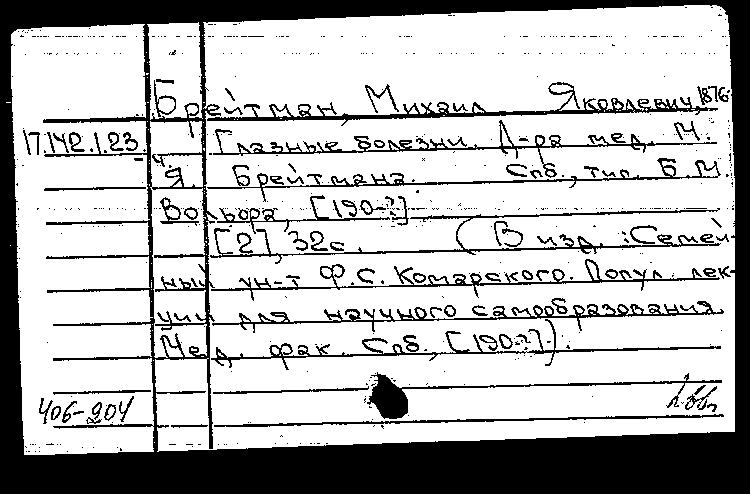 Брейтман, Михаил Яковлевич, 1876-
17.142.1.23. Глазные болезни. Д-ра мед. М.
ч.
Я. Брейтмана. Спб., тип. Б.М.
Вольфа, [190-?]
[2], 32с. (В изд.: Семей-
ный ун-т Ф.С. Комарского. Попул. лек-
ции для научного самообразования.
Мед. фак. Спб., [190-?]).
406-204